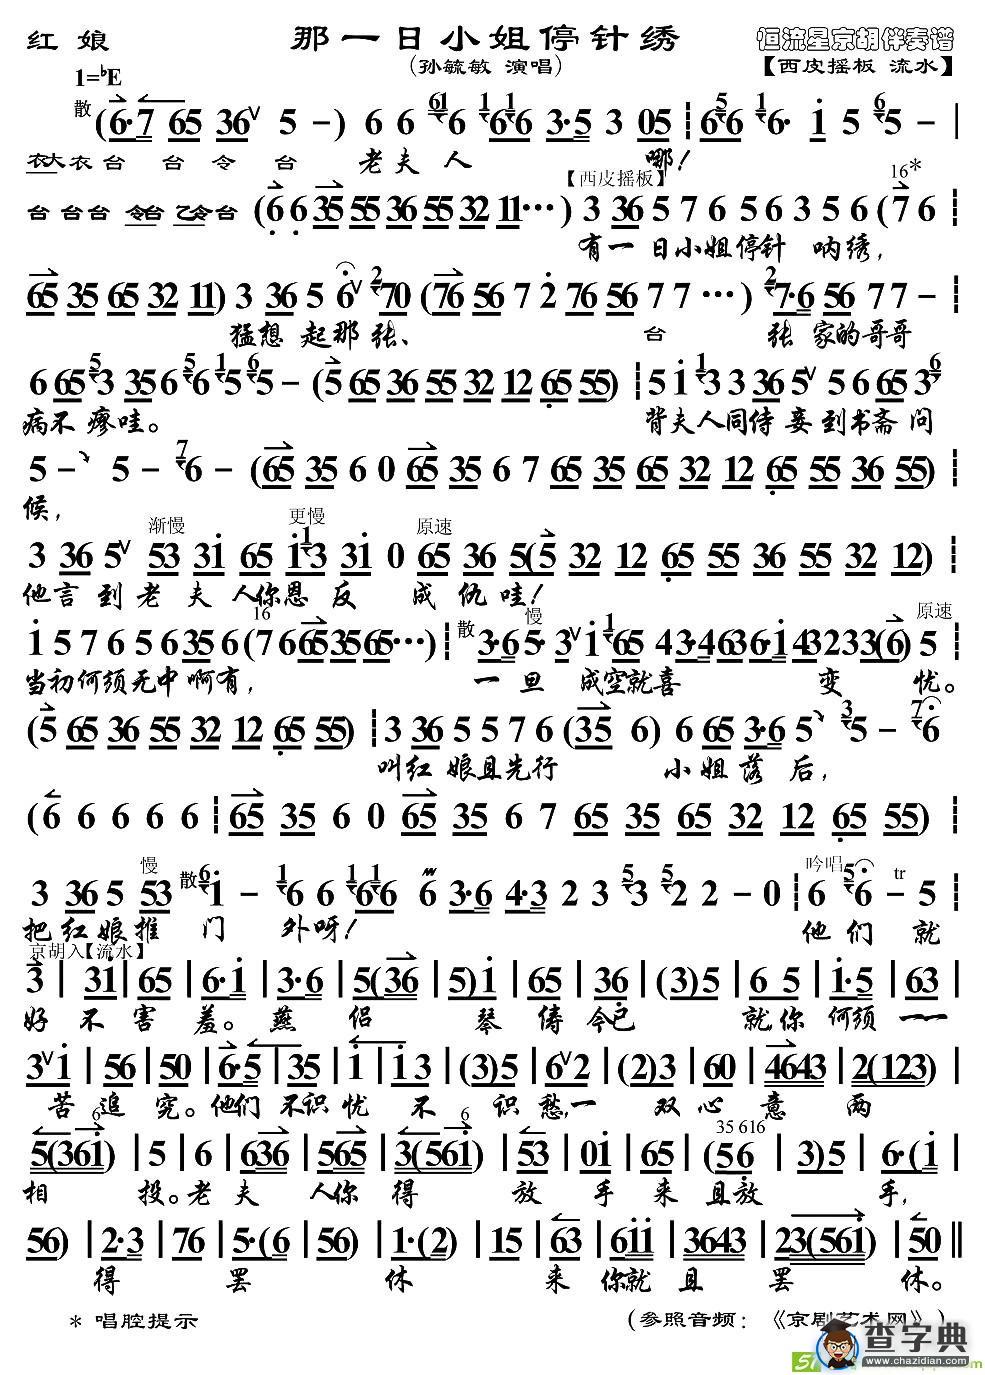 红娘 那一日小姐停针绣 恒流星京胡伴奏谱
(孙毓敏 演唱) 【西皮摇板 流水】
1=♭E
散 (6·7 65 36 ∨ 5 -) 6 6 6 66 3·5 3 05 ┊ 66 6· i 5 5 - |
衣大衣台 台 令 台 老夫人 哪!
【西皮摇板】 16*
台 台台 令台 乙令台 (6 6 35 55 36 55 32 11···) 3 36 5 7 6 5 6 3 5 6 (7 6 ┊
有一日小姐停针 呐绣,
65 35 65 32 11) 3 36 5 6 ∨ 70 (76 56 7 2 76 56 7 7 ···) 7·6 56 7 7 - ┊
猛想起那张、 台 张家的哥哥
6 65 3 35 6 5 5 - (5 65 36 55 32 12 65 55) ┊ 5 i 3 3 36 5 ∨ 5 6 65 3
病不瘳哇。 背夫人同侍妾到书斋问
5 - 5 - 6 - (65 35 6 0 65 35 6 7 65 35 65 32 12 65 55 35 55) ┊
候,
渐慢 更慢 原速
3 36 5 ∨ 53 3i 65 i3 3i 0 65 36 5(5 32 12 65 55 36 55 32 12) ┊
他言到老夫人你恩反 成仇哇!
16 散 慢 原速
i 5 7 6 5 6 35 6 (7 6 65 35 65 ···) ┊ 3·6 5· 3 ∨ i 65 4 3·4 63 6·i 43 2 3 3 (6) 5 ┊
当初何须无中啊有, 一旦 成空就喜 变 忧。
(5 65 36 55 32 12 65 55) ┊ 3 36 5 5 7 6 (35 6) 6 65 3·6 5 5 - 6
叫红娘且先行 小姐落后,
(6 6 6 6 6 ┊ 65 35 6 0 65 35 6 7 65 35 65 32 12 65 55) ┊
慢 散 吟唱 tr
3 36 5 53 i - 6 6 66 6 3·6 4·3 2 3 5 2 2 - 0 ┊ 6 6 - 5
把红娘推 门 外呀! 他们就
京胡入【流水】
3 | 3i | 65 | 6·i | 3·6 | 5(36 | 5) i | 65 | 36 | (3)5 | 6 5 | i·5 | 63 |
好不害羞。燕侣 琴俦今已 就你何须一一
3 ∨ i | 56 | 50 | 6·5 | 35 | i | i 3 | (3)5 | 6 ∨ 2 | (2)3 | 60 | 4643 | 2(123) |
苦追究。他们不识忧不识愁,一双心意两
6 6 35 616
5(36i) | 5 | 6 | 636 | 565 | 3(56i) | 53 | 0i | 65 | (56 | 3)5 | 6·(i |
相 投。老夫人你得 放手来且放 手,
56) | 2·3 | 76 | 5·(6 | 56) | 1·(2) | 15 | 63 | 6ii | 3643 | 23(56i) | 50 ‖
得 罢 休 来你就且罢休。
* 唱腔提示 (参照音频:《京剧艺术网》)
查字典
www.chazidian.com